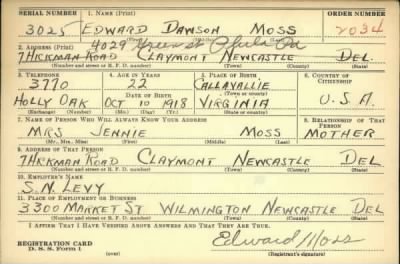 SERIAL NUMBER 1. NAME (Print) ORDER NUMBER
3025 EDWARD DAWSON MOSS 2034
(First) (Middle) (Last)
4029 St Phila Pa
2. ADDRESS (Print)
7 HICKMAN ROAD CLAYMONT NEWCASTLE DEL.
(Number and street or R. F. D. number) (Town) (County) (State)
3. TELEPHONE 4. AGE IN YEARS 5. PLACE OF BIRTH 6. COUNTRY OF CITIZENSHIP
3770 22 CALLAVALLIE
DATE OF BIRTH (Town or county)
HOLLY OAK OCT 10 1918 VIRGINIA U.S.A.
(Exchange) (Number) (Mo.) (Day) (Yr.) (State or country)
7. NAME OF PERSON WHO WILL ALWAYS KNOW YOUR ADDRESS 8. RELATIONSHIP OF THAT PERSON
MRS JENNIE MOSS MOTHER
(Mr., Mrs., Miss) (First) (Middle) (Last)
9. ADDRESS OF THAT PERSON
7 HICKMAN ROAD CLAYMONT NEWCASTLE DEL
(Number and street or R. F. D. number) (Town) (County) (State)
10. EMPLOYER'S NAME
S.N. LEVY
11. PLACE OF EMPLOYMENT OR BUSINESS
3300 MARKET ST WILMINGTON NEWCASTLE DEL
(Number and street or R. F. D. number) (Town) (County) (State)
I AFFIRM THAT I HAVE VERIFIED ABOVE ANSWERS AND THAT THEY ARE TRUE.
REGISTRATION CARD
D. S. S. Form 1 (over) Edward Moss
(Registrant's signature)